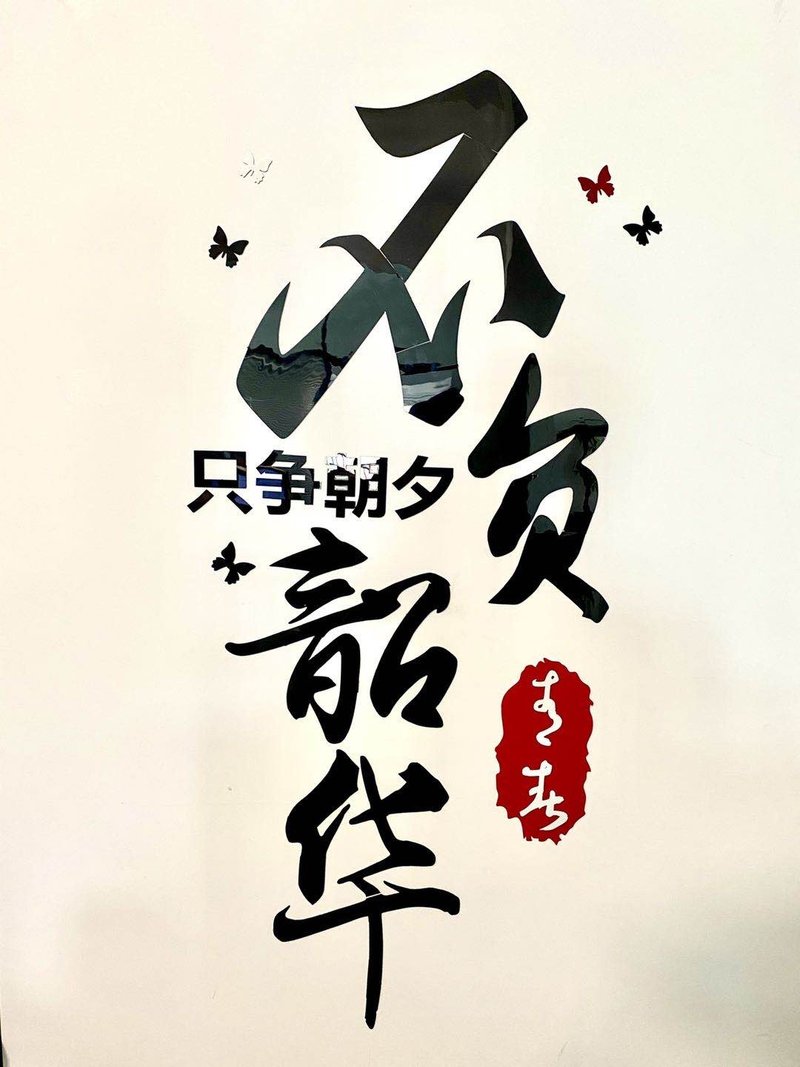 不负
只争朝夕
韶华
青春